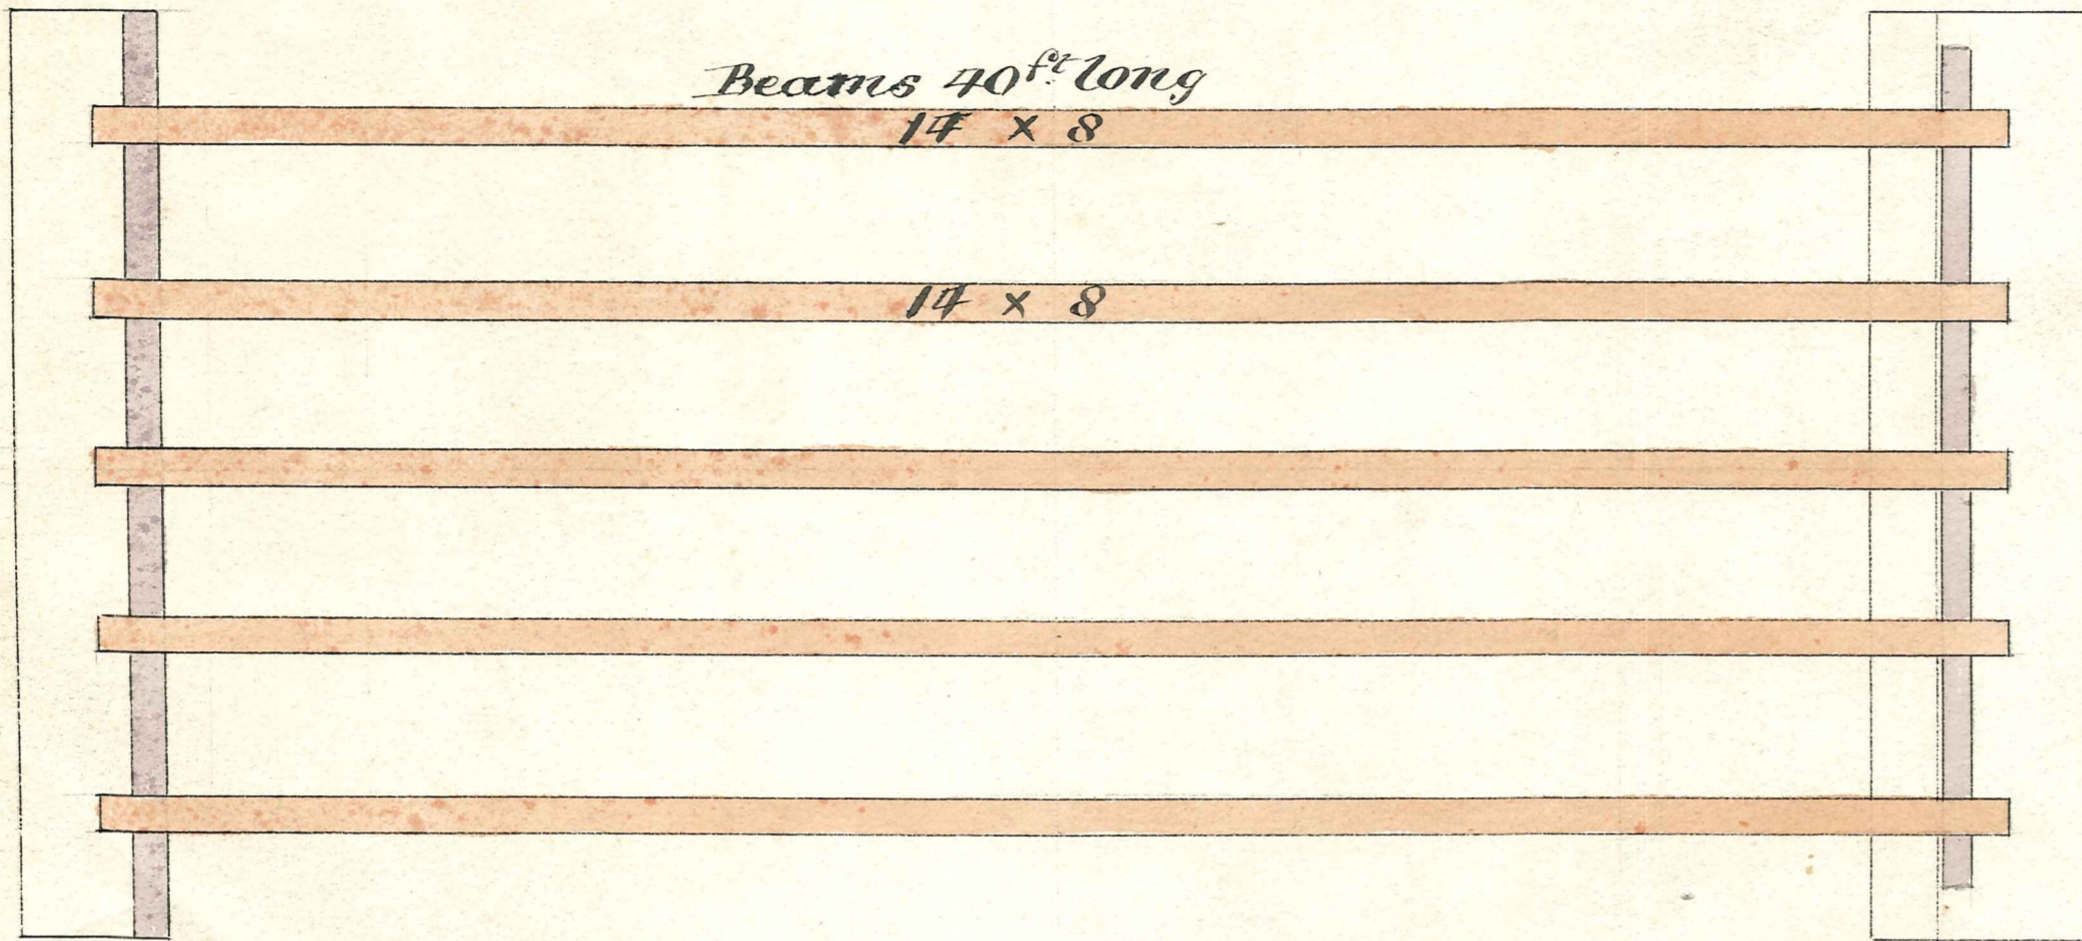 Beams 40ft long
14 x 8
14 x 8